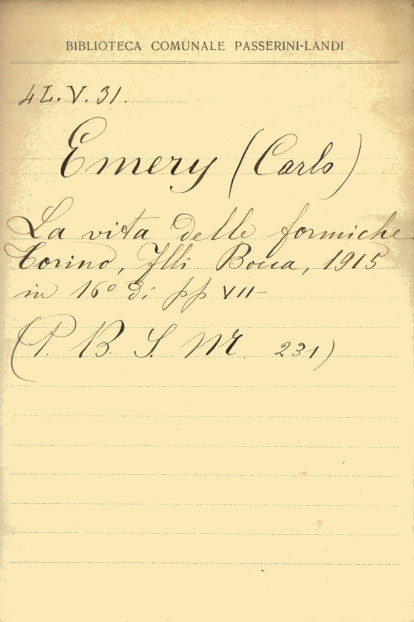 BIBLIOTECA COMUNALE PASSERINI-LANDI
4L. V. 31.
Emery (Carlo)
La vita delle formiche
Torino, Flli Bocca, 1915
in 16° di pp VII-
(P. B. S. M. 231)